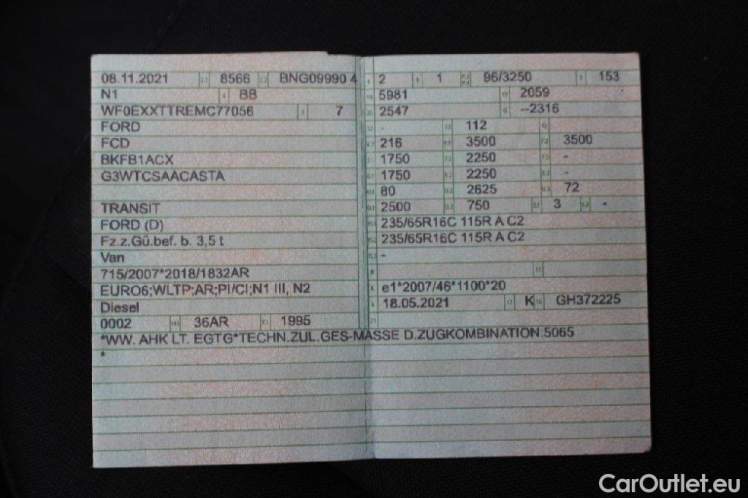 08.11.2021 8566 BNG09990 4
N1 BB
WF0EXXTTREMC77056 7
FORD
FCD
BKFB1ACX
G3WTCSAACASTA
TRANSIT
FORD (D)
Fz.z.Gü.bef. b. 3,5 t
Van
715/2007*2018/1832AR
EURO6;WLTP;AR;PI/CI;N1 III, N2
Diesel
0002 36AR 1995
2 1 96/3250 153
5981 2059
2547 --2316
- 112
216 3500 3500
1750 2250 -
1750 2250 -
80 2625 72
2500 750 3 -
235/65R16C 115R A C2
235/65R16C 115R A C2
-
e1*2007/46*1100*20
18.05.2021 K GH372225
*WW. AHK LT. EGTG*TECHN.ZUL.GES-MASSE D.ZUGKOMBINATION.5065
*
CarOutlet.eu